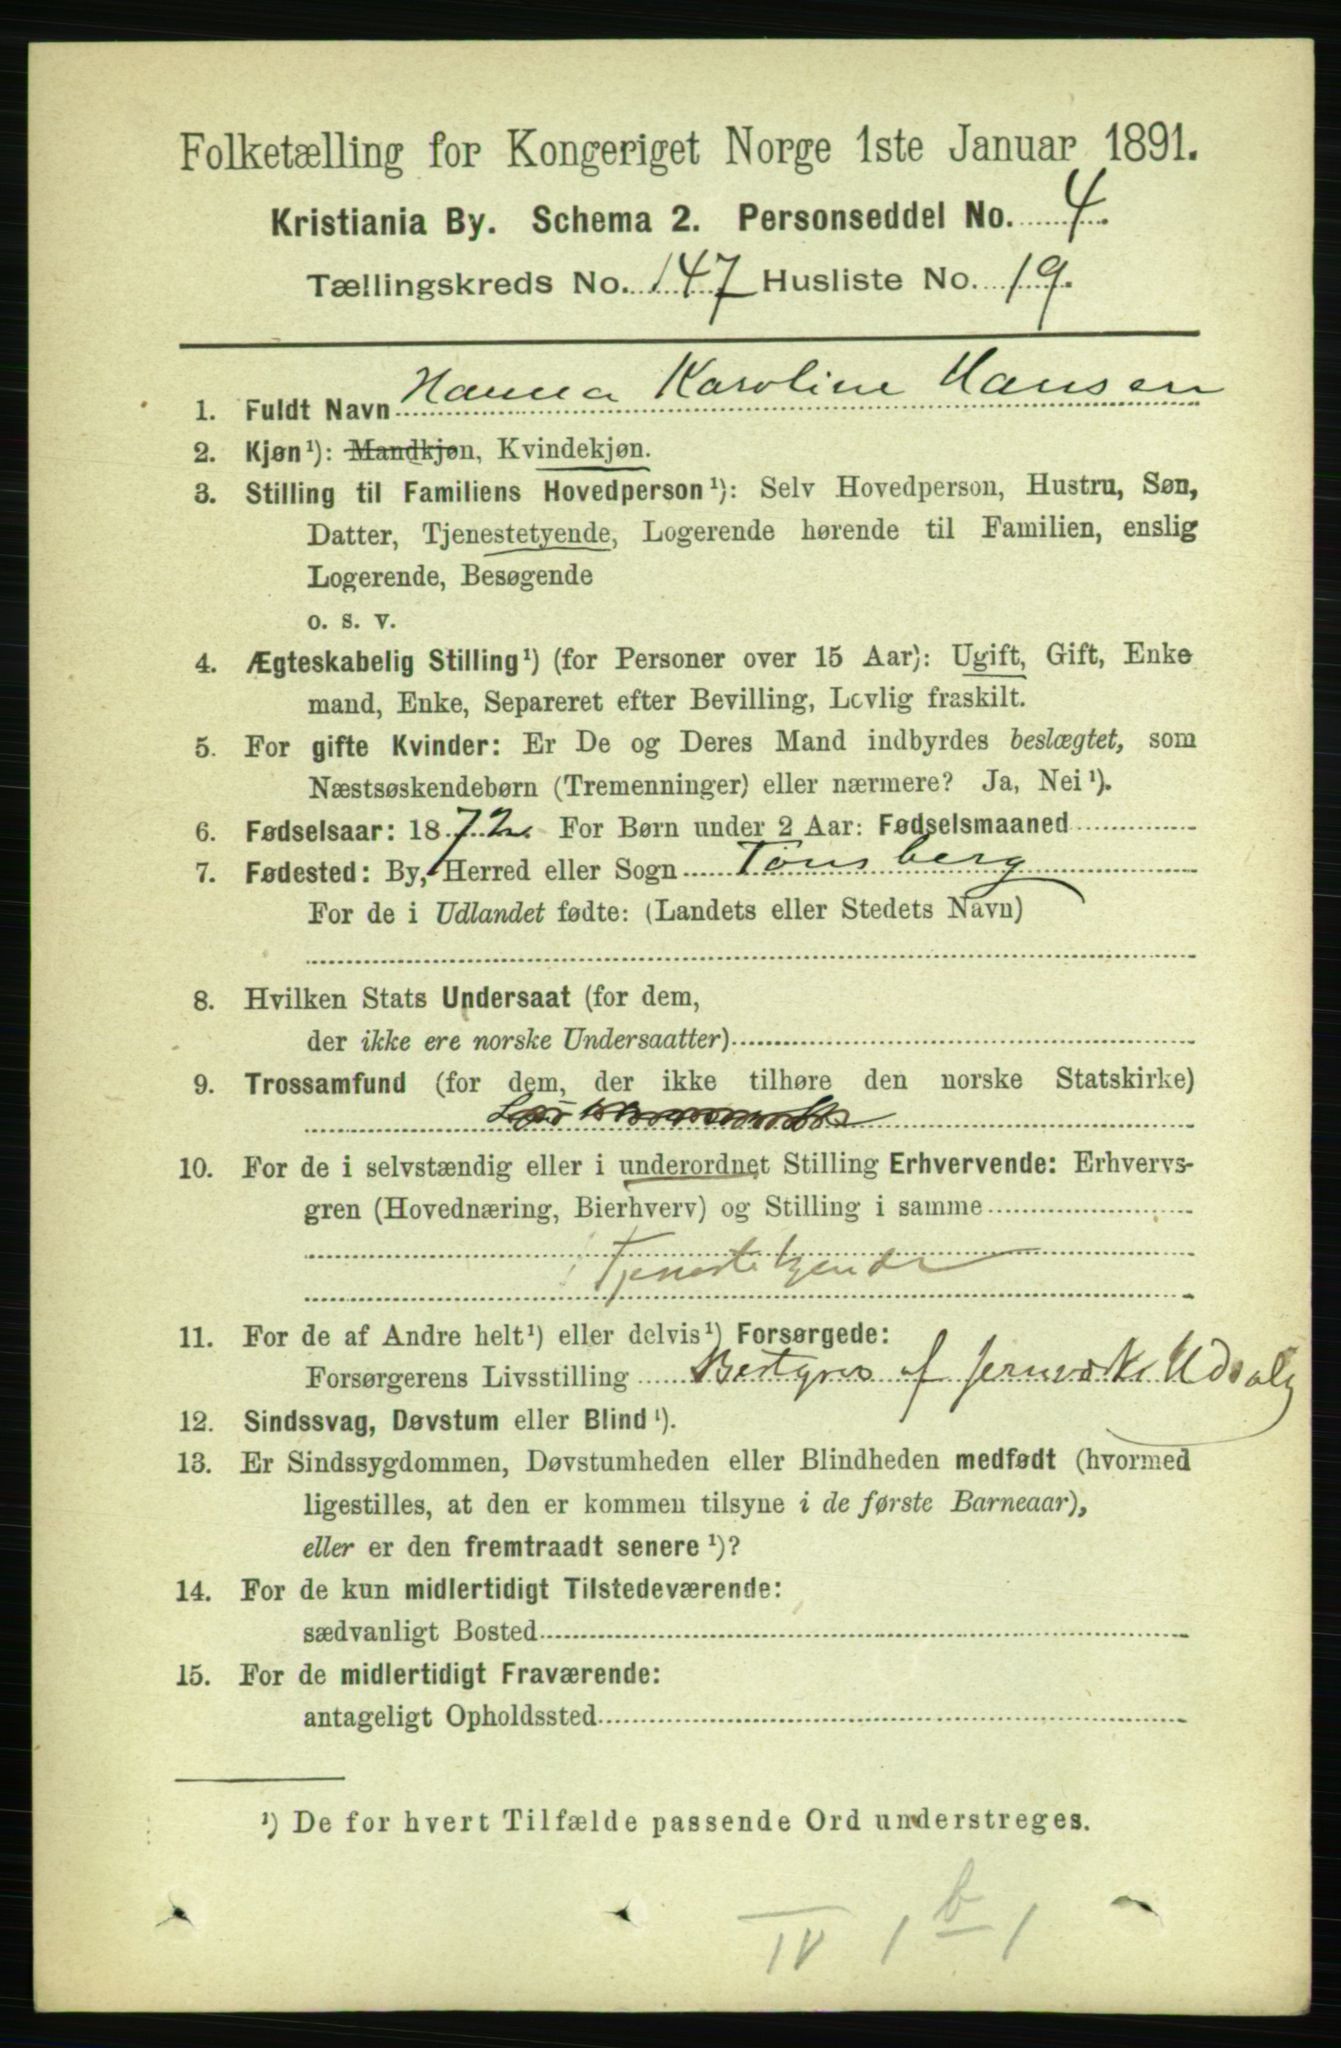 Folketælling for Kongeriget Norge 1ste Januar 1891.
Kristiania By. Schema 2. Personseddel No. 4.
Tællingskreds No. 147 Husliste No. 19.
1. Fuldt Navn Hanna Karoline Hansen
2. Kjøn¹): Mandkjøn, Kvindekjøn.
3. Stilling til Familiens Hovedperson¹): Selv Hovedperson, Hustru, Søn,
Datter, Tjenestetyende, Logerende hørende til Familien, enslig
Logerende, Besøgende
o. s. v.
4. Ægteskabelig Stilling¹) (for Personer over 15 Aar): Ugift, Gift, Enke
mand, Enke, Separeret efter Bevilling, Lovlig fraskilt.
5. For gifte Kvinder: Er De og Deres Mand indbyrdes beslægtet, som
Næstsøskendebørn (Tremenninger) eller nærmere? Ja, Nei¹).
6. Fødselsaar: 1872. For Børn under 2 Aar: Fødselsmaaned
7. Fødested: By, Herred eller Sogn Tønsberg
For de i Udlandet fødte: (Landets eller Stedets Navn)
8. Hvilken Stats Undersaat (for dem,
der ikke ere norske Undersaatter)
9. Trossamfund (for dem, der ikke tilhøre den norske Statskirke)
10. For de i selvstændig eller i underordnet Stilling Erhvervende: Erhvervs-
gren (Hovednæring, Bierhverv) og Stilling i samme
Tjenestetyende
11. For de af Andre helt¹) eller delvis¹) Forsørgede:
Forsørgerens Livsstilling Bestyrer af Jernværks Udsalg
12. Sindssvag, Døvstum eller Blind¹).
13. Er Sindssygdommen, Døvstumheden eller Blindheden medfødt (hvormed
ligestilles, at den er kommen tilsyne i de første Barneaar),
eller er den fremtraadt senere¹)?
14. For de kun midlertidigt Tilstedeværende:
sædvanligt Bosted
15. For de midlertidigt Fraværende:
antageligt Opholdssted
¹) De for hvert Tilfælde passende Ord understreges.
IV 1 b 1